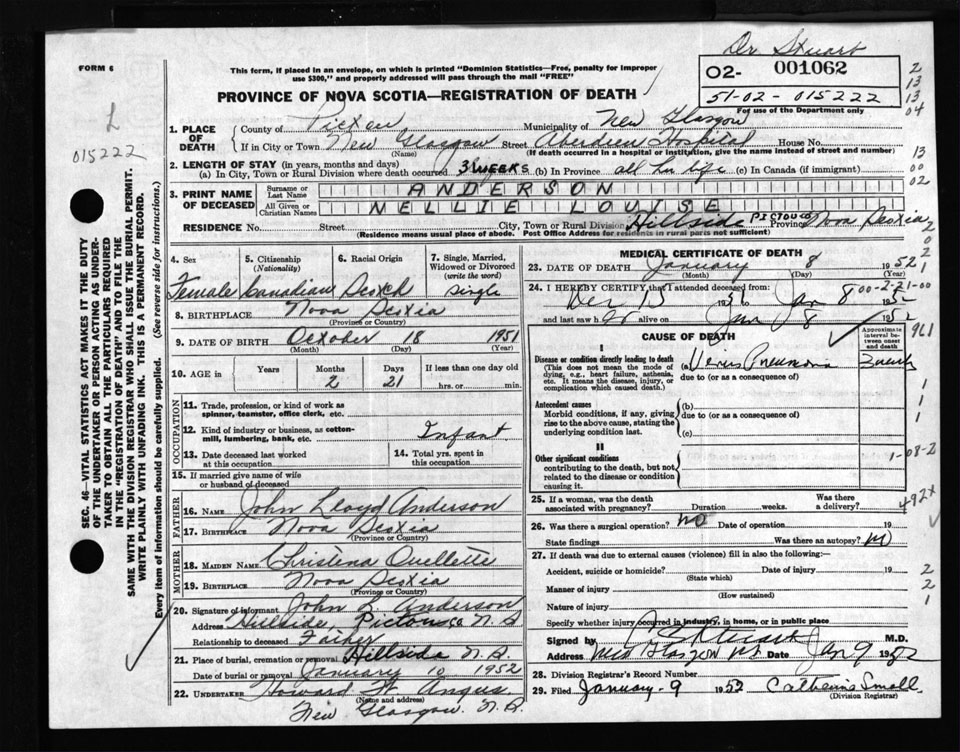 Dr Stuart
FORM 6
This form, if placed in an envelope, on which is printed "Dominion Statistics—Free, penalty for improper
use $300," and properly addressed will pass through the mail "FREE"
02- 001062
51-02-015222
For use of the Department only
PROVINCE OF NOVA SCOTIA—REGISTRATION OF DEATH
2
13
13
04
13
00
02
2
0
2
1
015222
1. PLACE OF DEATH
County of Pictou Municipality of New Glasgow
If in City or Town New Glasgow Street Aberdeen Hospital House No.
(Name) (If death occurred in a hospital or institution, give the name instead of street and number)
2. LENGTH OF STAY (in years, months and days)
(a) In City, Town or Rural Division where death occurred 3 WEEKS (b) In Province all her life (c) In Canada (if immigrant)
3. PRINT NAME OF DECEASED
Surname or Last Name ANDERSON
All Given or Christian Names NELLIE LOUISE
RESIDENCE No. Street City, Town or Rural Division Hillside PICTOU CO Province Nova Scotia
(Residence means usual place of abode. Post Office Address for residents in rural parts not sufficient)
SEC. 46—VITAL STATISTICS ACT MAKES IT THE DUTY
OF THE UNDERTAKER OR PERSON ACTING AS UNDER-
TAKER TO OBTAIN ALL THE PARTICULARS REQUIRED
IN THE "REGISTRATION OF DEATH" AND TO FILE THE
SAME WITH THE DIVISION REGISTRAR WHO SHALL ISSUE THE BURIAL PERMIT.
WRITE PLAINLY WITH UNFADING INK. THIS IS A PERMANENT RECORD.
Every item of information should be carefully supplied. (See reverse side for instructions.)
4. Sex
Female
5. Citizenship
(Nationality)
Canadian
6. Racial Origin
Scotch
7. Single, Married, Widowed or Divorced
(write the word)
Single
8. BIRTHPLACE Nova Scotia
(Province or Country)
9. DATE OF BIRTH October 18 1951
(Month) (Day) (Year)
10. AGE in Years Months Days If less than one day old
2 21 hrs. or min.
OCCUPATION
11. Trade, profession, or kind of work as
spinner, teamster, office clerk, etc.
12. Kind of industry or business, as cotton-
mill, lumbering, bank, etc. Infant
13. Date deceased last worked
at this occupation
14. Total yrs. spent in
this occupation
15. If married give name of wife
or husband of deceased
FATHER
16. NAME John Lloyd Anderson
17. BIRTHPLACE Nova Scotia
(Province or Country)
MOTHER
18. MAIDEN NAME Christena Ouellette
19. BIRTHPLACE Nova Scotia
(Province or Country)
20. Signature of informant John L. Anderson
Address Hillside, Pictou Co N.S.
Relationship to deceased Father
21. Place of burial, cremation or removal Hillside N.S.
Date of burial or removal January 10 1952
22. UNDERTAKER Howard W. Angus
(Name and address)
New Glasgow. N.S.
MEDICAL CERTIFICATE OF DEATH
23. DATE OF DEATH January 8 1952
(Month) (Day) (Year)
24. I HEREBY CERTIFY that I attended deceased from: 00-2-21-00
Dec 13 1951 to Jan 8 1952
and last saw her alive on Jan 8 1952
CAUSE OF DEATH
Approximate interval between onset and death
I
Disease or condition directly leading to death
(This does not mean the mode of
dying, e.g., heart failure, asthenia,
etc. It means the disease, injury, or
complication which caused death.)
(a) Virus Pneumonia
due to (or as a consequence of)
Antecedent causes
Morbid conditions, if any, giving
rise to the above cause, stating the
underlying condition last.
(b)
due to (or as a consequence of)
(c)
II
Other significant conditions
contributing to the death, but not
related to the disease or condition
causing it.
961
1
1
1
1-08-2
492X
25. If a woman, was the death
associated with pregnancy? Duration weeks. Was there a delivery?
26. Was there a surgical operation? NO Date of operation 19
State findings Was there an autopsy? No
27. If death was due to external causes (violence) fill in also the following:—
Accident, suicide or homicide? Date of injury 19
(State which)
Manner of injury
(How sustained)
Nature of injury
Specify whether injury occurred in industry, in home, or in public place
2
2
1
Signed by Stuart M.D.
Address New Glasgow NS Date Jan 9 1952
28. Division Registrar's Record Number
29. Filed January-9 1952 Catherine Small
(Division Registrar)